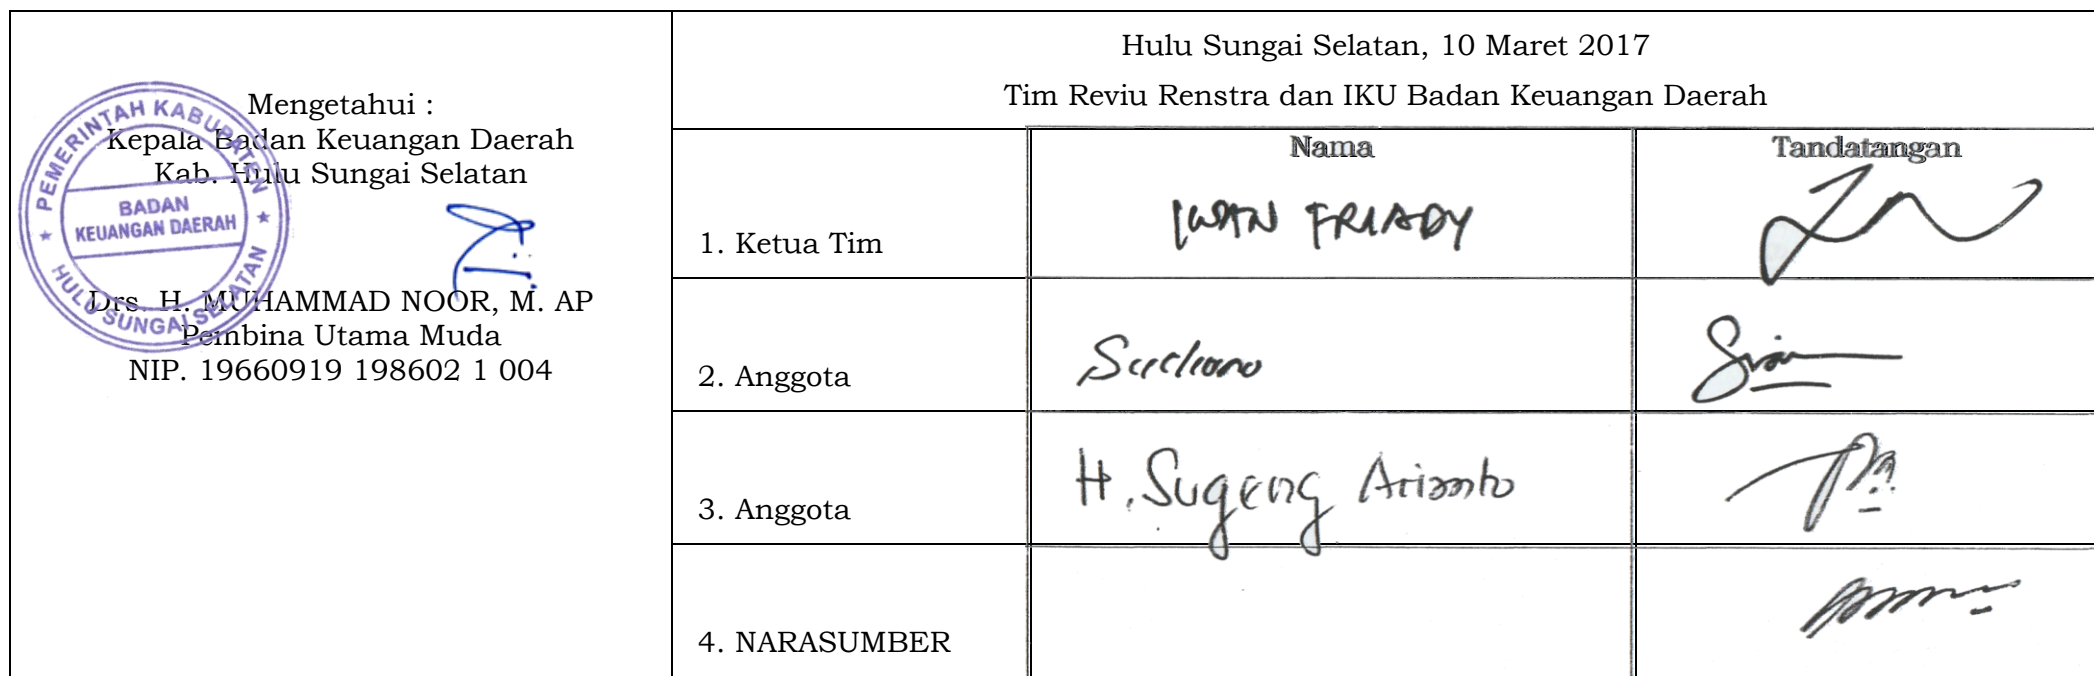 Mengetahui :
Kepala Badan Keuangan Daerah
Kab. Hulu Sungai Selatan
PEMERINTAH KABUPATEN
BADAN
KEUANGAN DAERAH
HULU SUNGAI SELATAN
Drs. H. MUHAMMAD NOOR, M. AP
Pembina Utama Muda
NIP. 19660919 198602 1 004
Hulu Sungai Selatan, 10 Maret 2017
Tim Reviu Renstra dan IKU Badan Keuangan Daerah
Nama Tandatangan
1. Ketua Tim IWAN FRIADY
2. Anggota
3. Anggota H. Sugeng Arianto
4. NARASUMBER